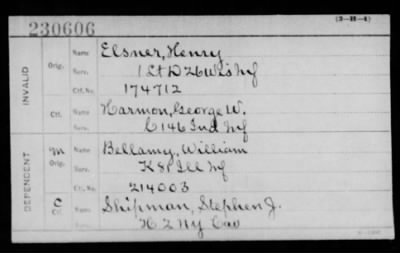 230606
(3-H-4)
INVALID
Orig.
Name
Elsner, Henry
Serv.
1 Lt D 26 Wis Inf
Ctf. No.
174712
Ctf.
Name
Harmon, George W.
Serv.
C 146 Ind Inf
DEPENDENT
M
Orig.
Name
Bellamy, William
Serv.
Ill Inf
Ctf. No.
214003
C
Ctf.
Name
Shipman, Stephen J.
Serv.
H 2 NY Cav